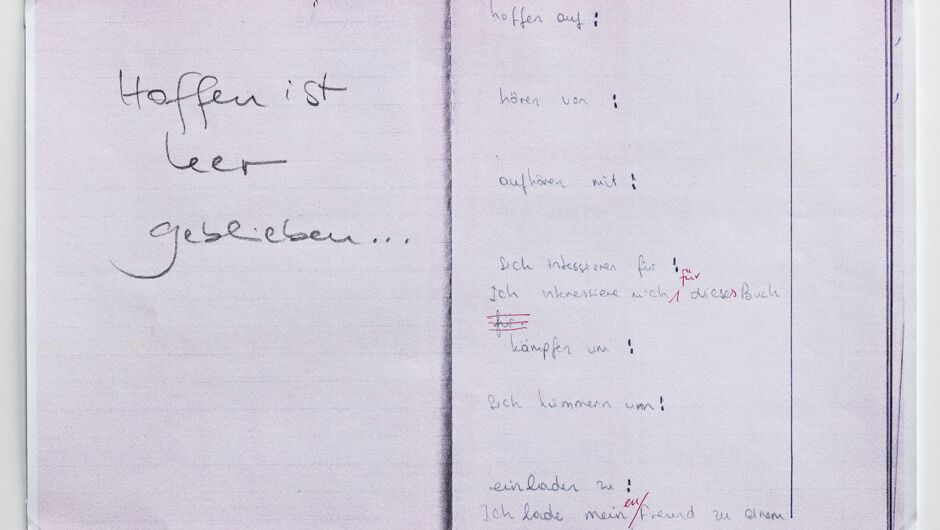 Hoffen ist
leer
geblieben...
hoffen auf :
hören von :
aufhören mit :
sich interessieren für :
für
Ich interessiere mich dieses Buch
für.
kämpfen um :
sich kümmern um :
einladen zu :
en
Ich lade mein Freund zu einem